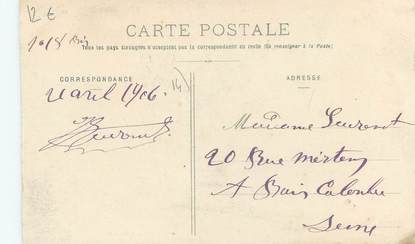 12 €
1018
CARTE POSTALE
Tous les pays étrangers n'acceptent pas la correspondance au recto (Se renseigner à la Poste)
CORRESPONDANCE
ADRESSE
avril 1906
Madame Laurent
20 Rue Mertens
A Bois Colombes
Seine